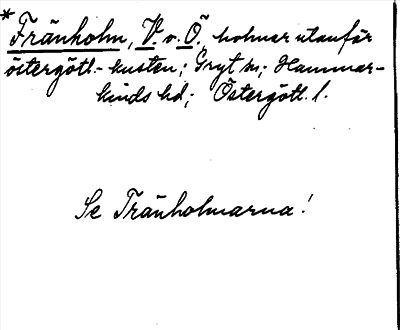 * Fränholm, V. o. Ö., holmar utanför
östergötl.-kusten; Gryt sn; Hammar-
kinds hd; Östergötl. l.
Se Tränholmarna!